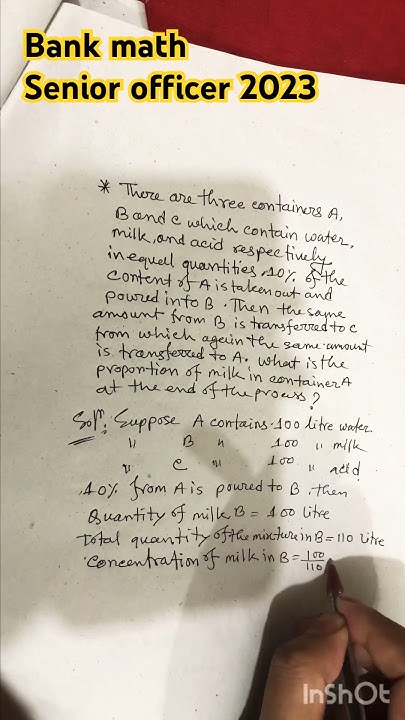 Bank math
Senior officer 2023
* There are three containers A,
B and C which contain water,
milk, and acid respectively
in equell quantities. 10% of the
content of A is taken out and
poured into B. Then the same
amount from B is transferred to C
from which again the same amount
is transferred to A. What is the
proportion of milk in container A
at the end of the process?
Solⁿ: Suppose A contains 100 litre water
" B " 100 " milk
" C " 100 " acid
10% from A is poured to B. then
Quantity of milk B = 100 litre
Total quantity of the mixture in B = 110 litre
Concentration of milk in B = 100/110
InShOt